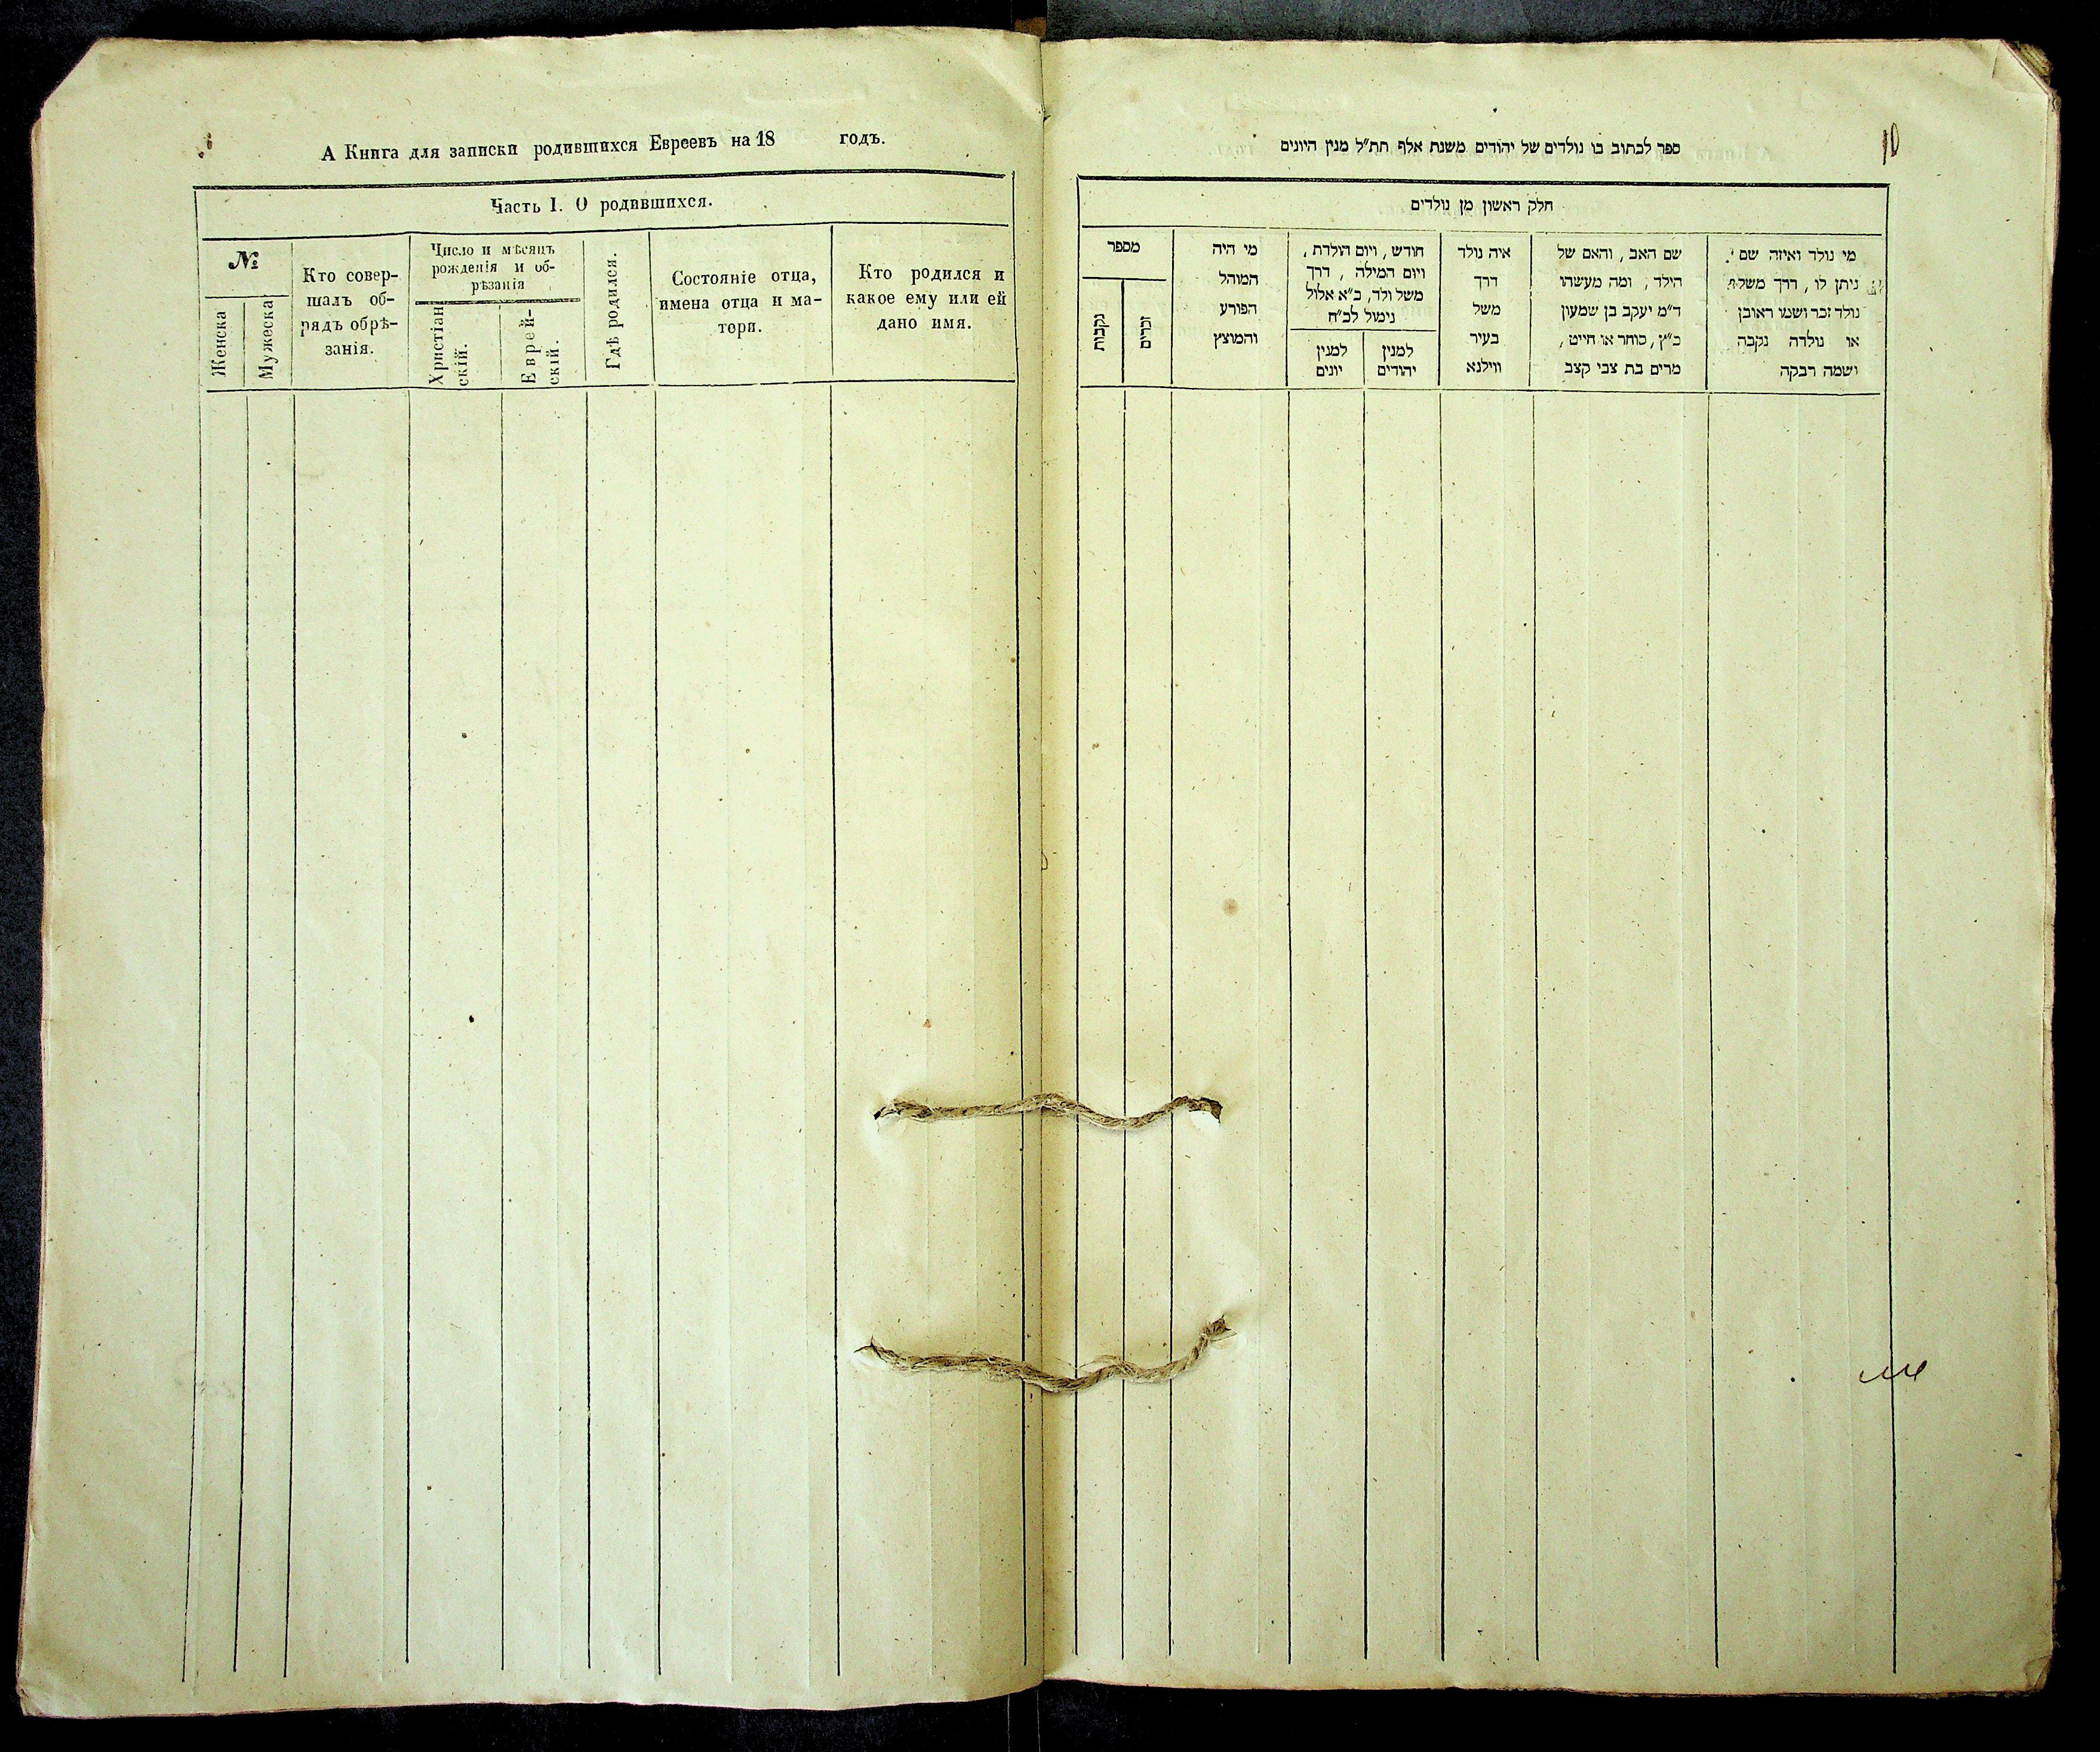 А Книга для записки родившихся Евреевъ на 18 годъ.
Часть I. О родившихся.
№
Женска
Мужеска
Кто совер-
шалъ об-
рядъ обрѣ-
занія.
Число и мѣсяцъ
рожденія и об-
рѣзанія
Христіан
скій.
Еврей-
скій.
Гдѣ родился.
Состояніе отца,
имена отца и ма-
тери.
Кто родился и
какое ему или ей
дано имя.
10
ספר לכתוב בו נולדים של יהודים משנת אלף תת״ל מנין היונים
חלק ראשון מן נולדים
מי נולד ואיזה שם
ניתן לו, דרך משל
נולד זכר ושמו ראובן
או נולדה נקבה
ושמה רבקה
שם האב, והאם של
הילד, ומה מעשהו
ד״מ יעקב בן שמעון
כ״ץ, סוחר או חייט,
מרים בת צבי קצב
איה נולד
דרך
משל
בעיר
ווילנא
חודש, ויום הולדת,
ויום המילה, דרך
משל ולד, כ״א אלול
נימול לכ״ח
למנין
יהודים
למנין
יונים
מי היה
המוהל
הפורע
והמוצץ
מספר
זכרים
נקבות